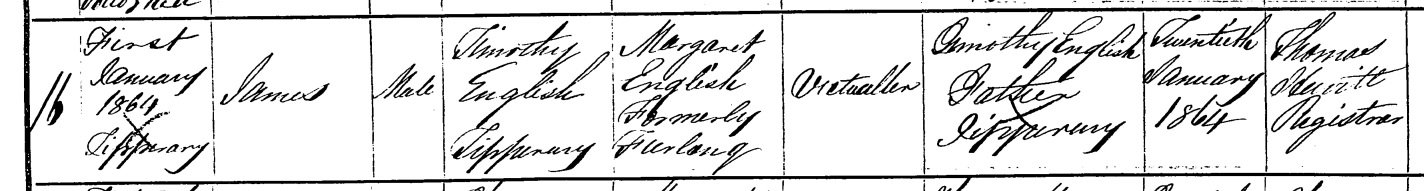 16
First
January
1864
Tipperary
James
Male
Timothy
English
Tipperary
Margaret
English
Formerly
Furlong
Victualler
Timothy English
Father
Tipperary
Twentieth
January
1864
Thomas
Registrar